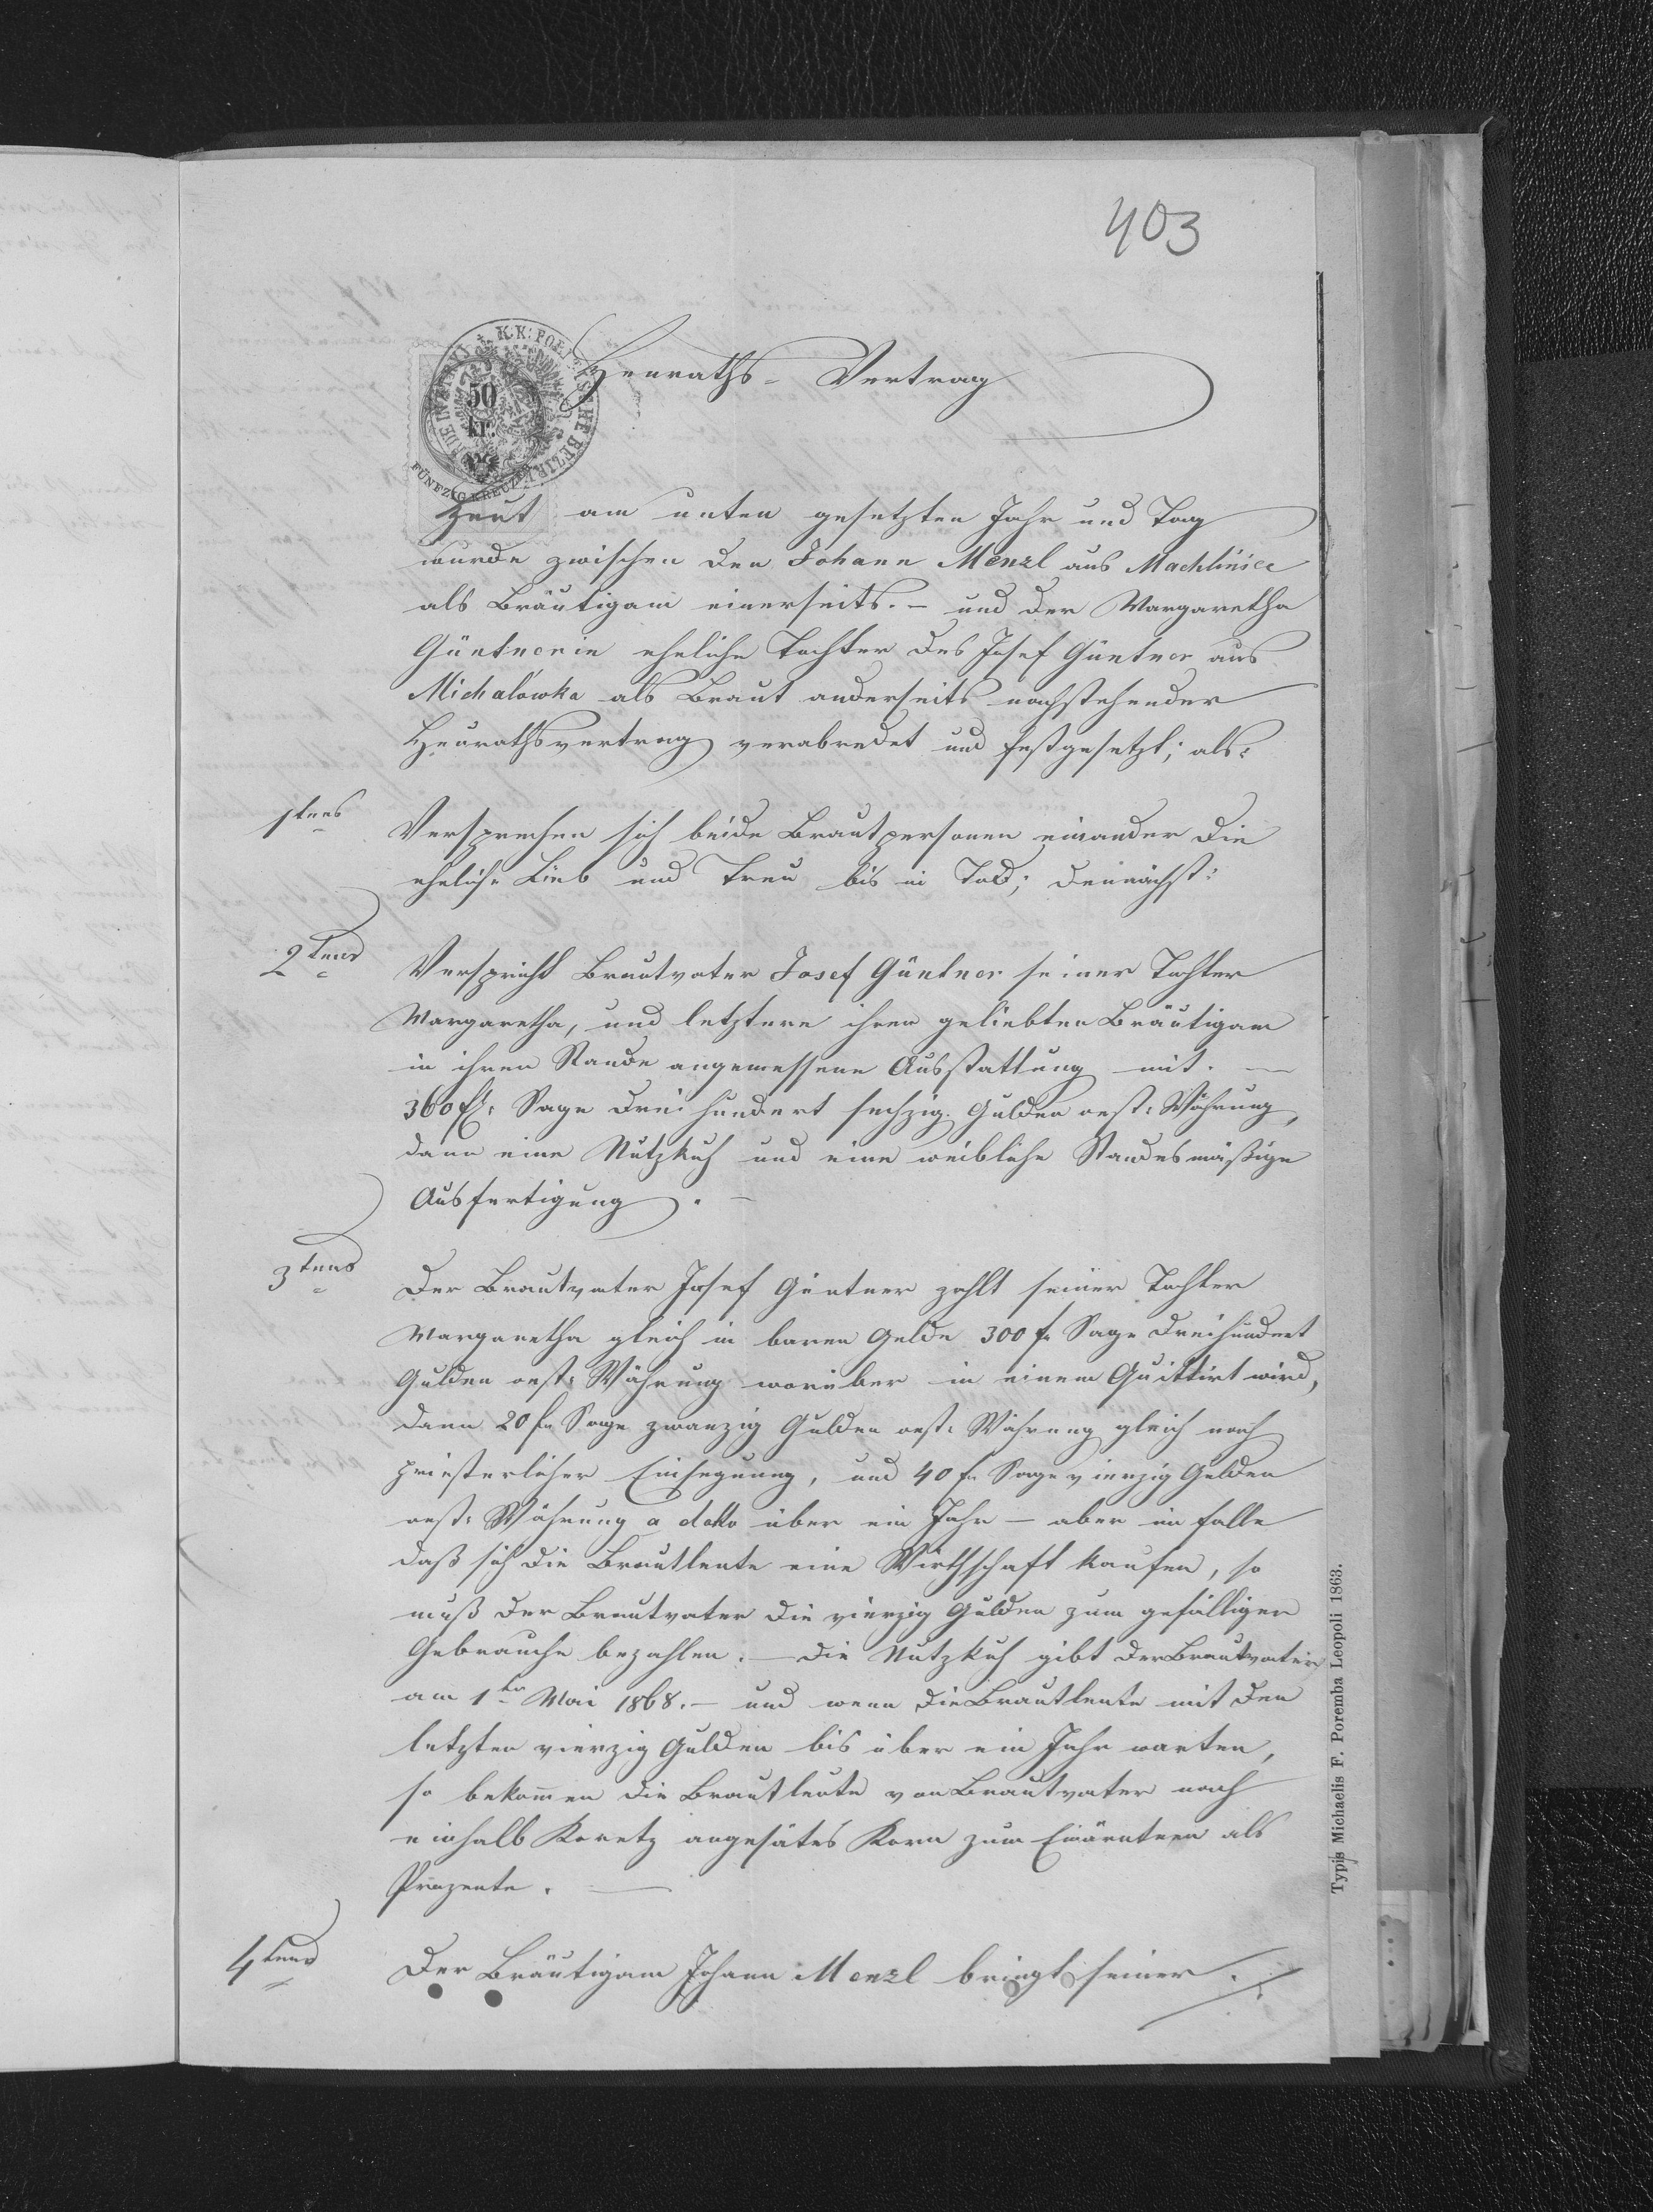 403
Heuraths-Vertrag
50
kr.
FÜNFZIG KREUZER
Heut am unten gesetzten Jahr und Tag
wurde zwischen den Johann Menzl aus Machlinice
als Bräutigam einerseits. – und der Margaretha
Güntnerin eheliche Tochter des Josef Güntner aus
Michalówka als Braut anderseits nachstehender
Heurathsvertrag verabredet und festgesetzt; als:
1tens Versprechen sich beide Brautpersonen einander die
eheliche Lieb und Treu bis in Tod; demnächst:
2tens Verspricht Brautvater Josef Güntner seiner Tochter
Margaretha, und letztere ihren geliebten Bräutigam
in ihren Stande angemessene Ausstattung mit. –
360 fl: Sage drei hundert sechzig Gulden oest: Währung,
dann eine Nutzkuh und eine weibliche Standesmäßige
Ausfertigung. –
3tens Der Brautvater Josef Güntner zahlt seiner Tochter
Margaretha gleich in baren Gelde 300 fr Sage dreihundert
Gulden oest: Währung worüber in einem Quittirt wird,
dann 20 fr Sage zwanzig Gulden oest: Währung gleich nach
priesterlicher Einsegnung, und 40 fr Sage vierzig Gulden
oest: Währung a datto über ein Jahr – aber im falle
daß sich die Brautleute eine Wirthschaft kaufen, so
muß der Brautvater die vierzig Gulden zum gefälligen
Gebrauche bezahlen. – Die Nutzkuh gibt der Brautvater
am 1ten Mai 1868. – und wenn die Brautleute mit den
letzten vierzig Gulden bis über ein Jahr warten,
so bekommen die Brautleute von Brautvater noch
einhalb Koretz angesätes Korn zum Einärnten als
Prozente. –
4tens Der Bräutigam Johann Menzl bringt seiner ./.
Typis Michaelis F. Poremba Leopoli 1863.